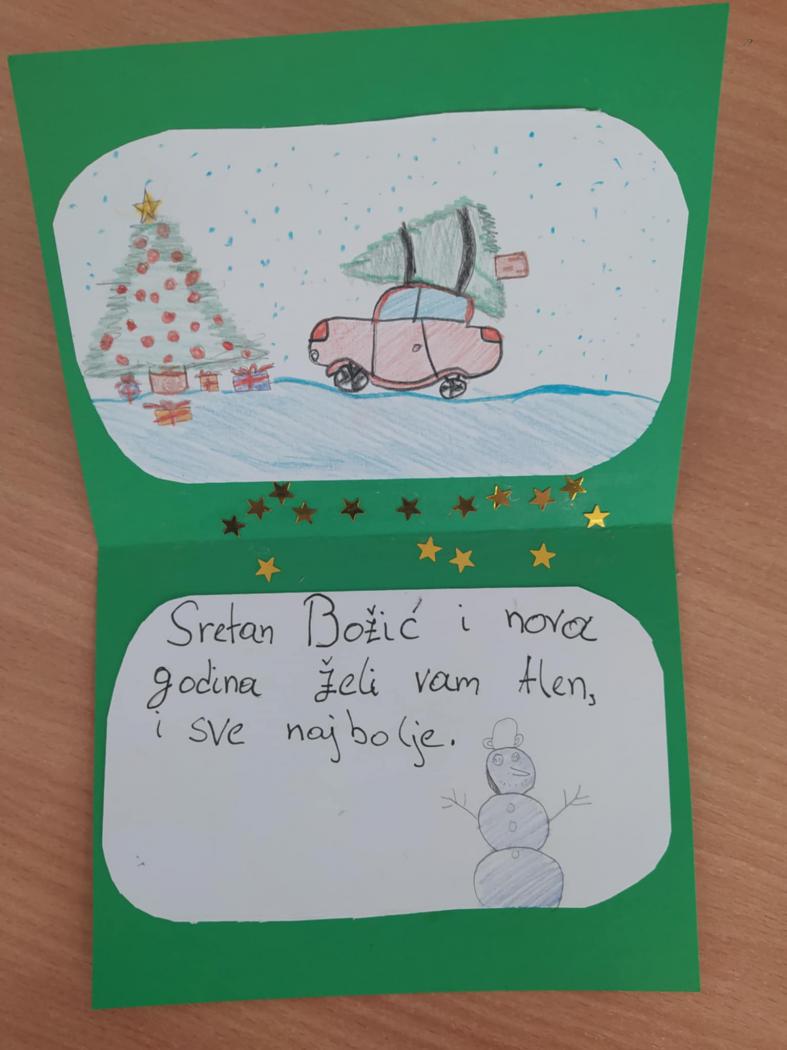 Sretan Božić i nova
godina želi vam Alen,
i sve najbolje.